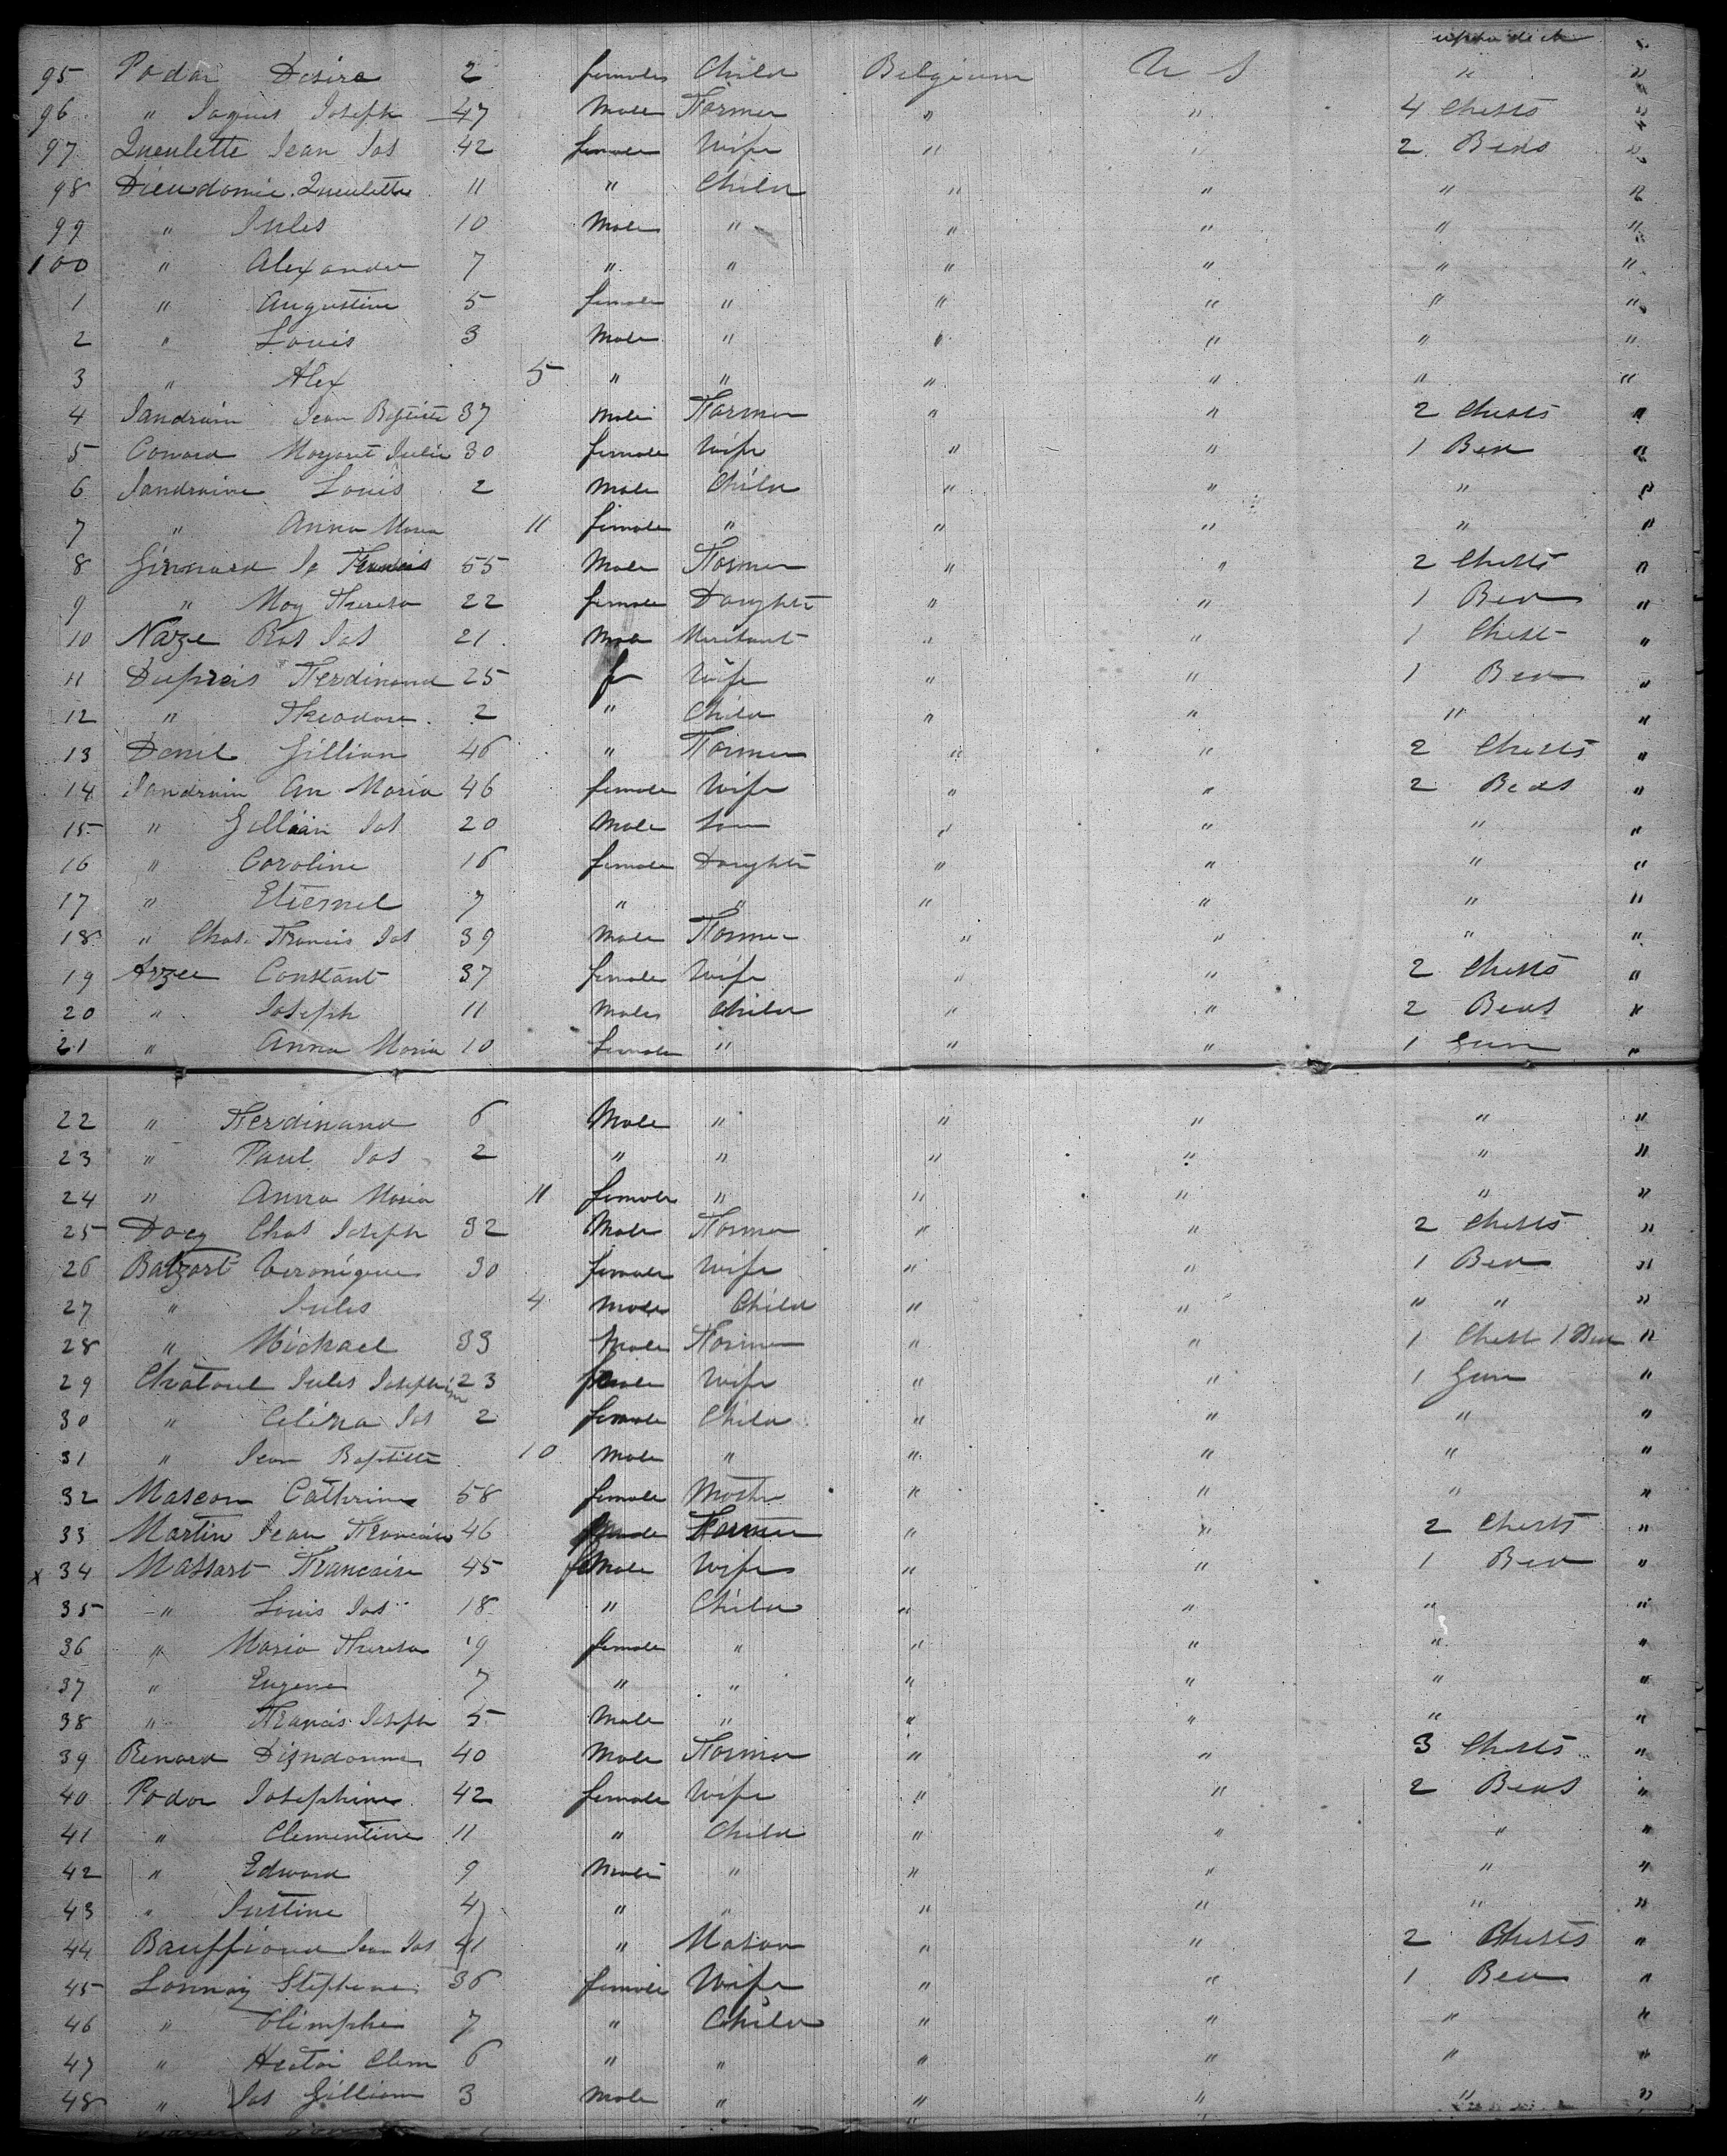 95 Podor Desire 2 females Child Belgium U S " "
96 " Jaques Joseph 47 Male Farmer " " 4 Chests "
97 Queulette Jean Jos 42 female Wife " " 2 Beds "
98 Dieudonnie Queulette 11 " Child " " " "
99 " Jules 10 Male " " " " "
100 " Alexander 7 " " " " " "
1 " Augustine 5 female " " " " "
2 " Louis 3 Male " " " " "
3 " Alex 5 " " " " " "
4 Jandrain Jean Baptiste 37 Male Farmer " " 2 Chests "
5 Conard Margaret Julie 30 female Wife " " 1 Bed "
6 Jandraine Louis 2 Male Child " " " "
7 " Anna Maria 11 female " " " " "
8 Ginnard Jo Francis 55 Male Farmer " " 2 Chests "
9 " May Theresa 22 female Daughter " " 1 Bed "
10 Naze Jos 21 Male Merchant " " 1 Chest "
11 Dupreis Ferdinand 25 fe Wife " " 1 Bed "
12 " Theodore 2 " Child " " " "
13 Denil Gillian 46 " Farmer " " 2 Chests "
14 Jandrain An Maria 46 female Wife " " 2 Beds "
15 " Gillian Jos 20 Male Son " " " "
16 " Caroline 16 female Daughter " " " "
17 " Etiernel 7 " " " " " "
18 " Chas Francis Jos 39 Male Farmer " " " "
19 Arzee Constant 37 female Wife " " 2 Chests "
20 " Joseph 11 Males Child " " 2 Beds "
21 " Anna Maria 10 female " " " 1 Gun "
22 " Ferdinand 6 Male " " " " "
23 " Paul Jos 2 " " " " " "
24 " Anna Maria 11 female " " " " "
25 Docq Chas Joseph 32 Male Farmer " " 2 Chests "
26 Batzart Veronique 30 female Wife " " 1 Bed "
27 " Jules 4 Male Child " " " " "
28 " Michael 33 Male Farmer " " 1 Chest 1 Bed "
29 Chatoul Jules Josephine 23 female Wife " " 1 Gun "
30 " Celina Jos 2 female Child " " " "
31 " Jean Baptiste 10 Male " " " " "
32 Mascon Cathrine 58 female Mother " " " "
33 Martin Jean Francois 46 Male Farmer " " 2 Chests "
x 34 Massart Francaise 45 feMale Wife " " 1 Bed "
35 " Louis Jos 18 " Child " " " "
36 " Maria Theresa 19 female " " " " "
37 " Eugene 7 " " " " " "
38 " Francis Joseph 5 Male " " " " "
39 Renard Diendonne 40 Male Farmer " " 3 Chests "
40 Podor Josephine 42 female Wife " " 2 Beds "
41 " Clementine 11 " Child " " " "
42 " Edward 9 Male " " " " "
43 " Justine 4 " " " " " "
44 Bauffioud Jean Jos 41 " Mason " " 2 Chests "
45 Lonnay Stephene 36 female Wife " " 1 Bed "
46 " Olimphe 7 " Child " " " "
47 " Hector Clem 6 " " " " " "
48 " Jos Gillian 3 Male " " " " "